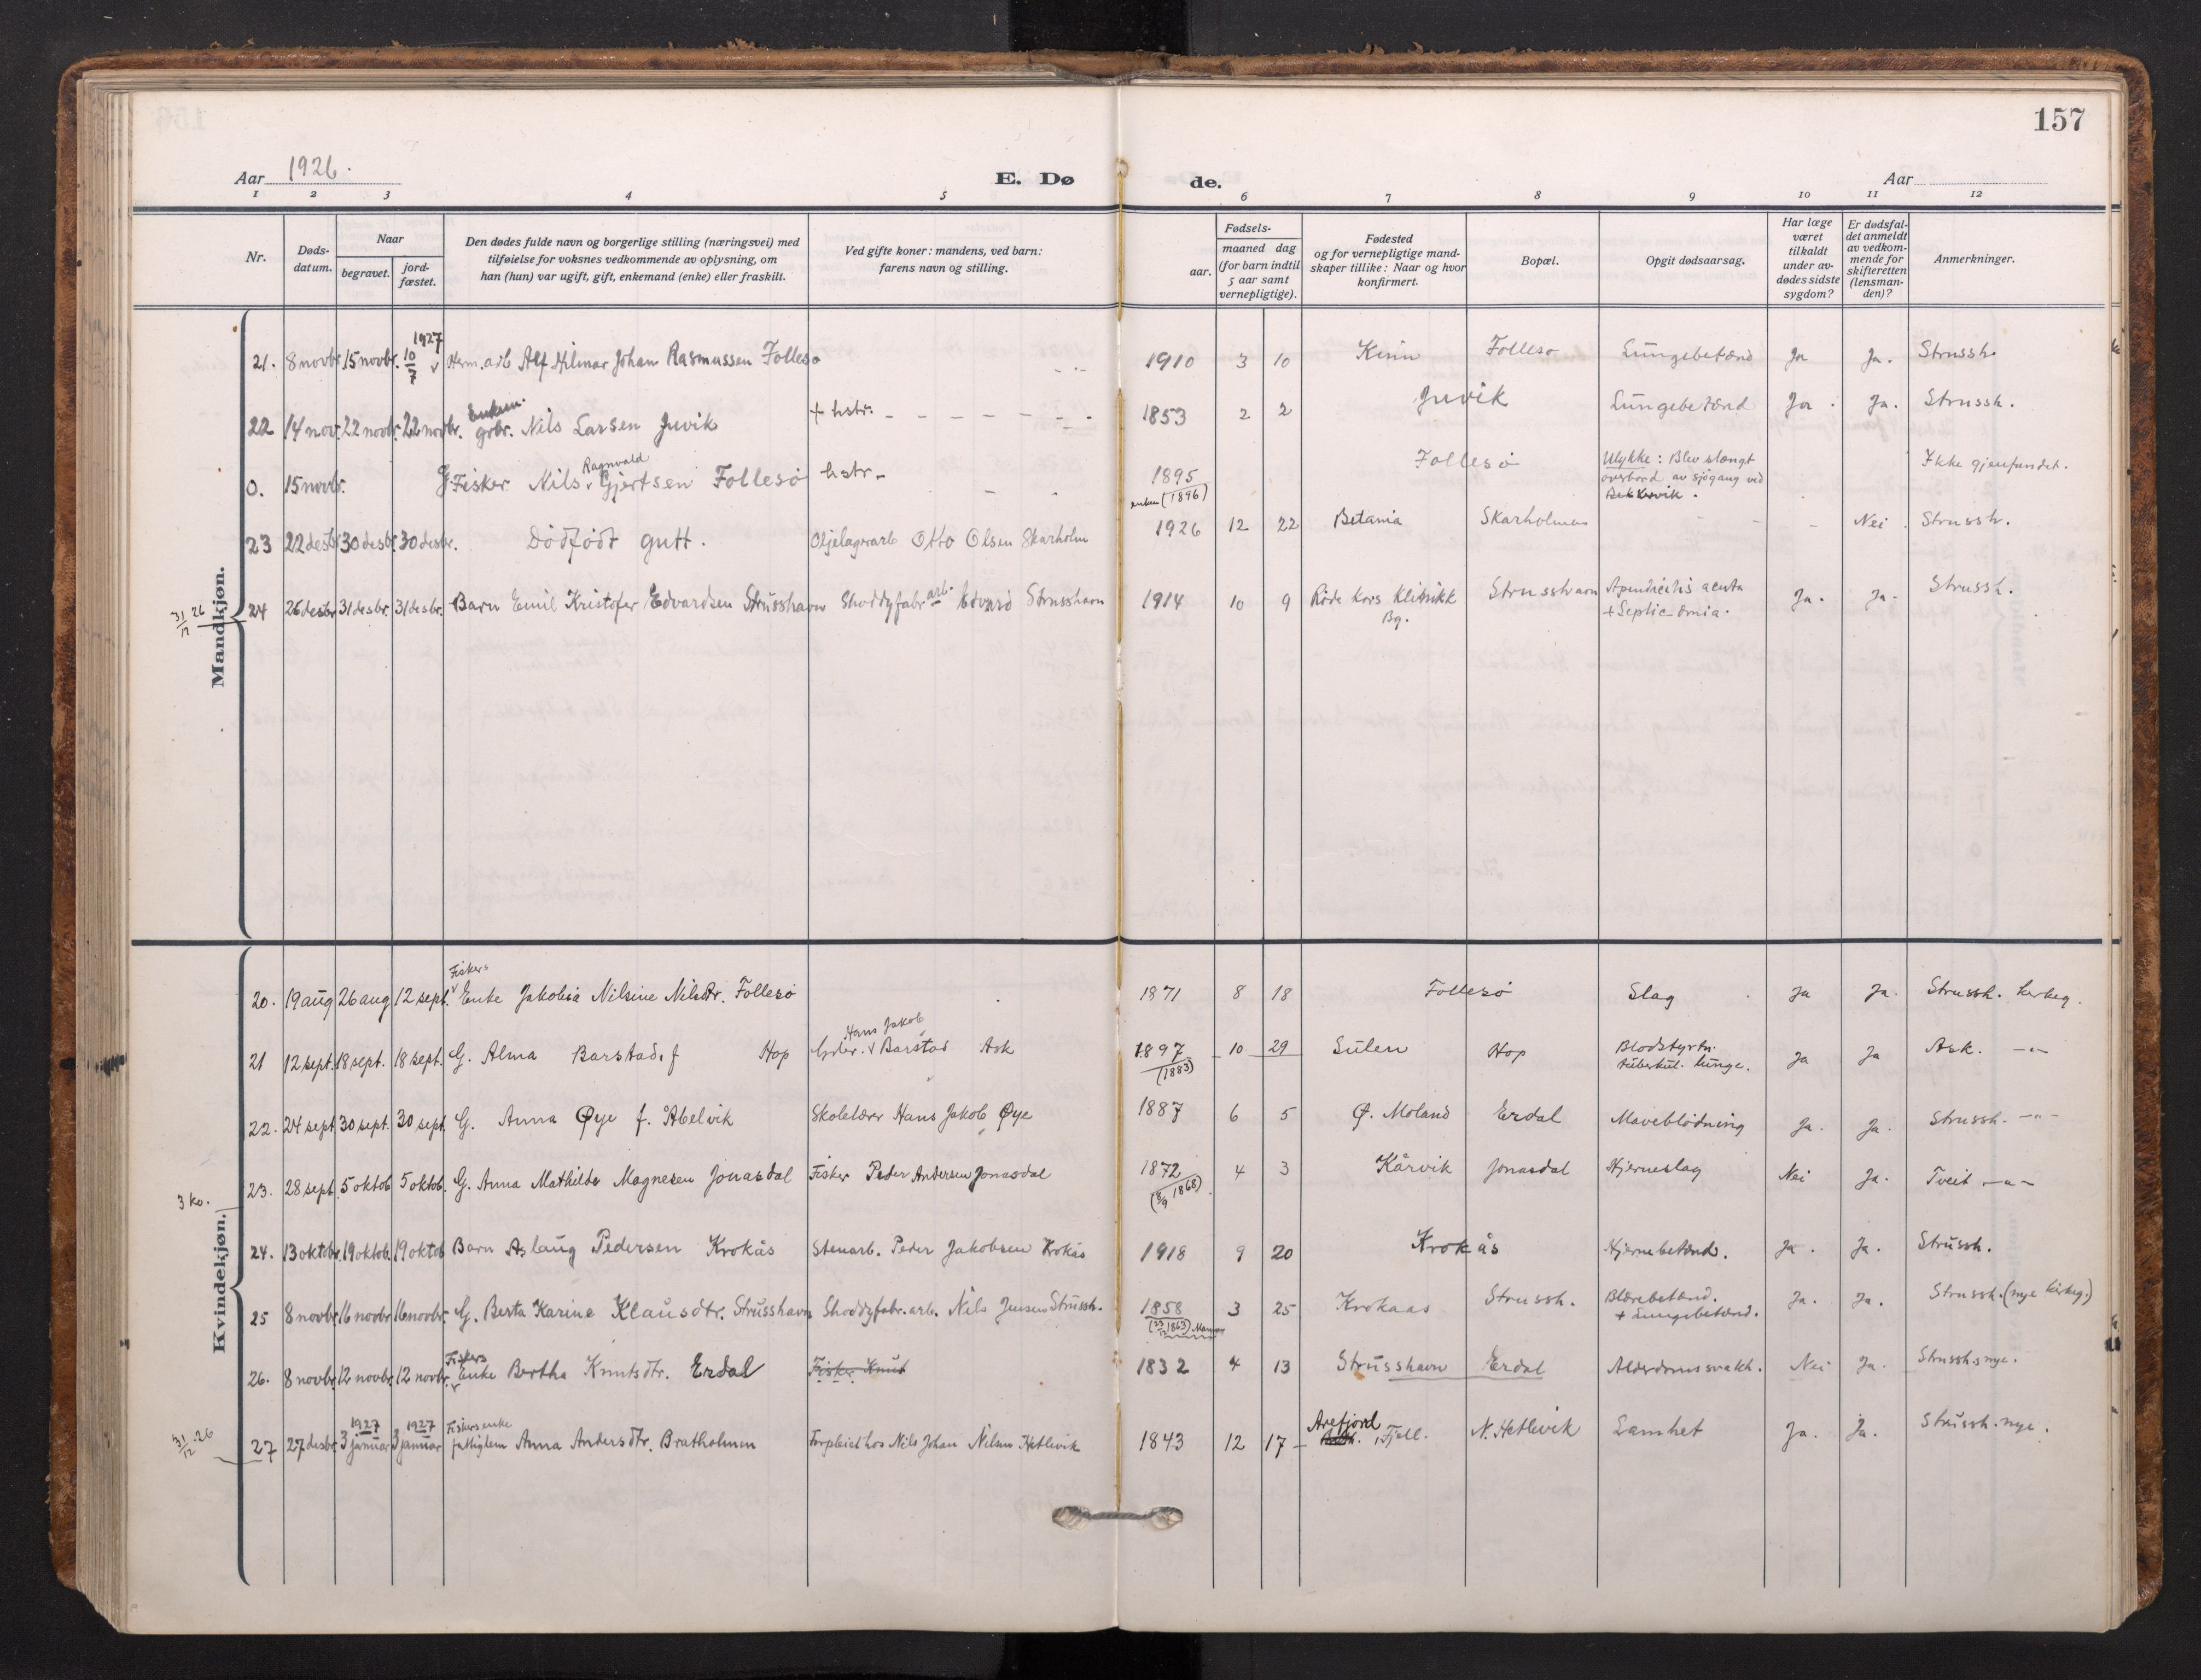 157
Aar 1926.
E. Dø de.
Aar
1 2 3 4 5 6 7 8 9 10 11 12
Nr.
Døds-
datum.
Naar
begravet.
jord-
fæstet.
Den dødes fulde navn og borgerlige stilling (næringsvei) med
tilføielse for voksnes vedkommende av oplysning, om
han (hun) var ugift, gift, enkemand (enke) eller fraskilt.
Ved gifte koner: mandens, ved barn:
farens navn og stilling.
Fødsels-
aar.
maaned dag
(for barn indtil
5 aar samt
vernepligtige).
Fødested
og for vernepligtige mand-
skaper tillike: Naar og hvor
konfirmert.
Bopæl.
Opgit dødsaarsag.
Har læge
været
tilkaldt
under av-
dødes sidste
sygdom?
Er dødsfal-
det anmeldt
av vedkom-
mende for
skifteretten
(lensman-
den)?
Anmerkninger.
Mandkjøn.
1927
21. 8 novbr. 15 novbr. 10/7 Herm. arb Alf Hilmar Johan Rasmussen Follesø 1910 3 10 Kinn Follesø Lungebetænd Ja Ja. Strussh.
Enkem.
22 14 nov. 22 novbr. 22 novbr. gbr. Nils Larsen Juvik + hstr. 1853 2 2 Juvik Lungebetænd Ja. Ja. Strussh.
Ragnvald
0. 15 novbr. G. Fisker Nils Gjertsen Follesø hstr. 1895 Follesø Ulykke: Blev slængt Ikke gjenfundet.
enken (1896) overbord av sjøgang ved
Bekkervik.
23 22 desbr 30 desbr. 30 desbr. Dødfødt gutt. Oljelagerarb Otto Olsen Skarholm 1926 12 22 Betania Skarholmen Nei Strussh.
31/12 26 24 26 desbr. 31 desbr. 31 desbr. Barn Emil Kristofer Edvardsen Strusshavn Shoddyfabr arb. Edvard Strusshavn 1914 10 9 Røde kors klinikk Strusshavn Apendicitis acuta Ja. Ja. Strussh.
Bg. + Septicæmia.
Kvindekjøn.
Fiskers
20. 19 aug 26 aug 12 sept. Enke Jakobia Nilsine Nilsdtr. Follesø 1871 8 18 Follesø Slag Ja Ja. Strussh. kirkeg.
Hans Jakob
21 12 sept. 18 sept. 18 sept. G. Alma Barstad, f Hop Barstad Ask 1897 10 29 Sulen Hop Blodstyrtn. Ja Ja Ask. -"-
(1883) tuberkul. lunge.
22. 24 sept 30 sept. 30 sept. G. Anna Øye f. Abelvik Skolelærer Hans Jakob Øye 1887 6 5 Ø. Moland Erdal Maveblødning Ja. Ja. Strussh. -"-
3 ko. 23. 28 sept. 5 oktob 5 oktob. G. Anna Mathilde Magnesen Jonasdal Fisker Peder Andersen Jonasdal 1872 4 3 Kårvik Jonasdal Hjerneslag Nei Ja. Tveit -"-
(8/9 1868)
24. 13 oktobr. 19 oktob. 19 oktob Barn Aslaug Pedersen Krokås Stenarb. Peder Jakobsen Krokås 1918 9 20 Krokås Hjernebetænd. Ja. Ja. Strussh.
25 8 novbr. 16 novbr. 16 novbr. G. Berta Karine Klausdtr. Strusshavn Shoddyfabr. arb. Nils Jensen Strussh. 1858 3 25 Krokaas Strussh. Blærebetænd. Ja. Ja. Strussh. (nye kirkeg.)
(23/12 1863) Mannen + Lungebetænd.
Fiskers
26. 8 novbr. 12 novbr. 12 novbr. Enke Bertha Knutsdtr. Erdal Fisker Knut 1832 4 13 Strusshavn Erdal Alderdomssvakh. Nei Ja. Strussh. nye.
1927 1927 Fiskersenke Arefjord
31/12 26 27 27 desbr. 3 januar 3 januar fattiglem Anna Andersdtr. Bratholmen Forpleiet hos Nils Johan Nilsen Hetlevik 1843 12 17 Fjell. N. Hetlevik Lamhet Ja. Ja. Strussh. nye.